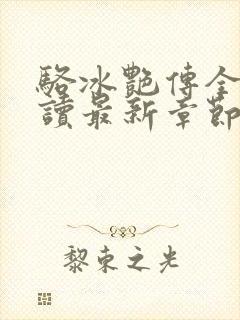 駱冰艷傳全
讀最新章節
黎束之光